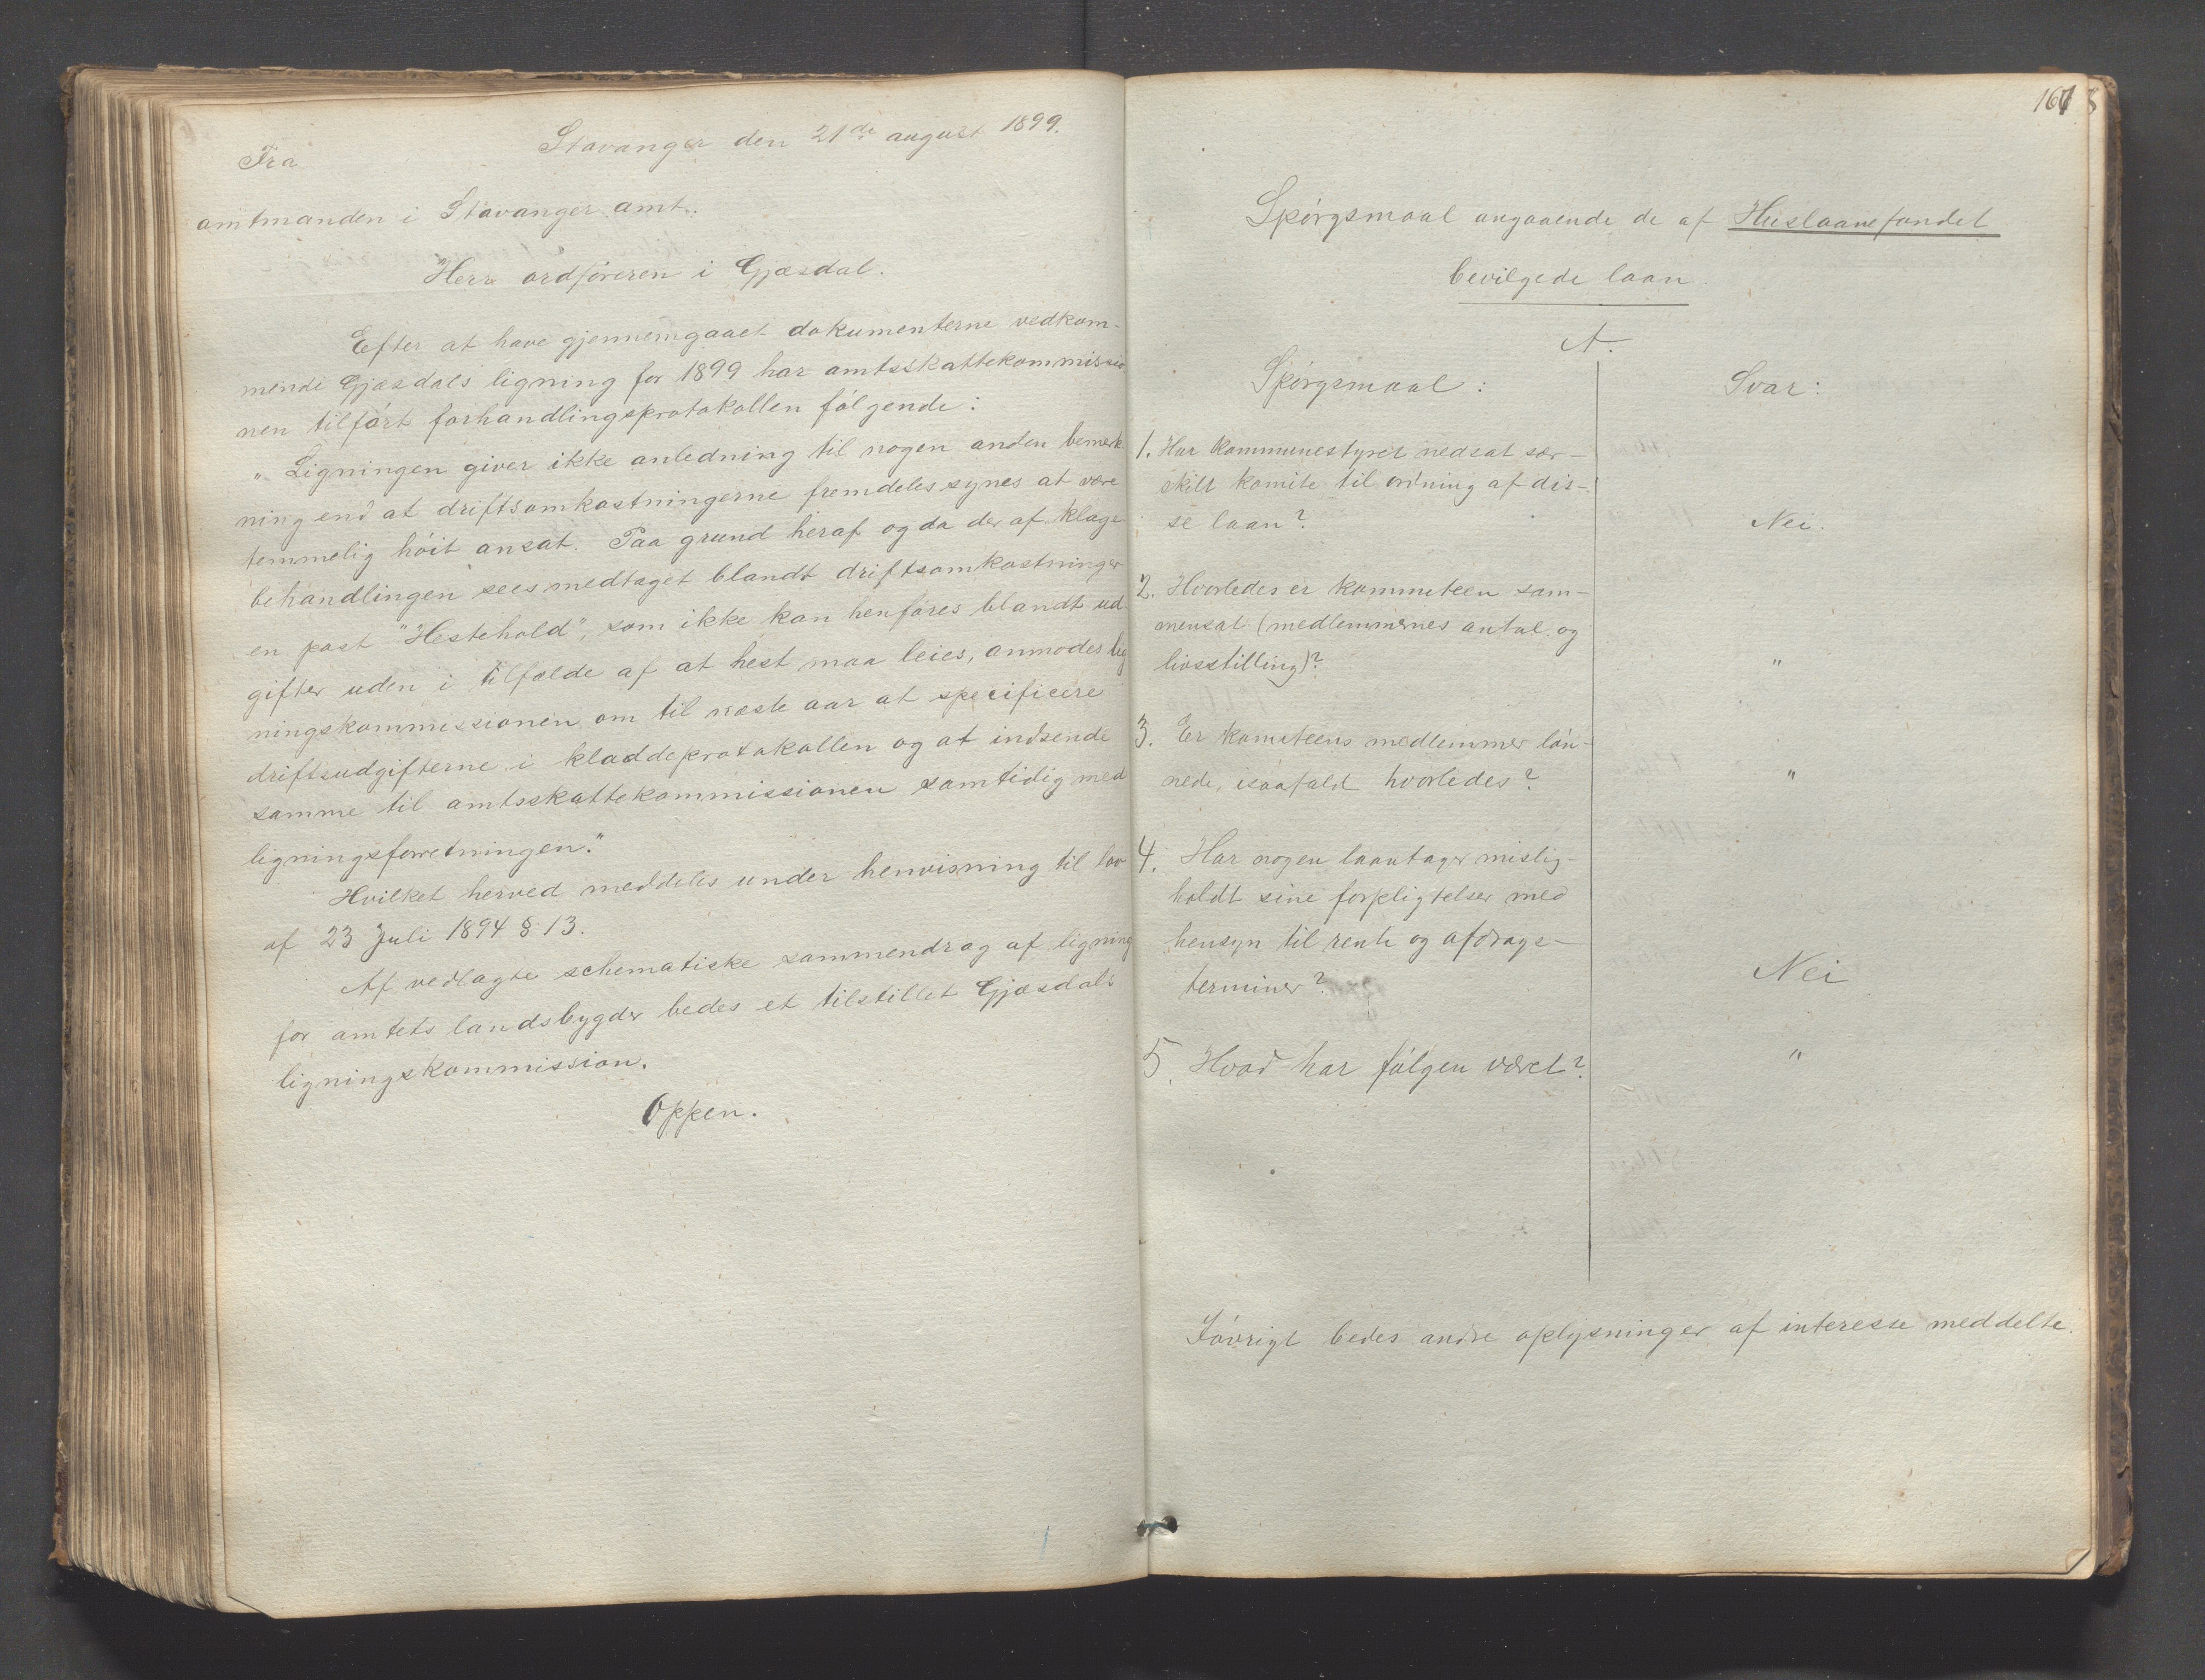 Stavanger den 21de august 1899.
Fra
amtmanden i Stavanger amt.
Herr ordføreren i Gjæsdal.
Efter at have gjennemgaaet dokumenterne vedkom-
mende Gjæsdals ligning for 1899 har amtsskattekommissio
nen tilført forhandlingsprotokollen følgende:
"Ligningen giver ikke anledning til nogen anden bemærk
ning end at driftsomkostningerne fremdeles synes at være
temmelig høit ansat. Paa grund heraf og da der af klage
behandlingen sees medtaget blandt driftsomkostninger
en post "Hestehold", som ikke kan henføres blandt ud
gifter uden i tilfælde af at hest maa leies, anmodes lig
ningskommissionen om til næste aar at specificere
driftsudgifterne i kladdeprotokollen og at indsende
samme til amtsskattekommissionen samtidig med
ligningsforretningen."
Hvilket herved meddeles under henvisning til lov
af 23 Juli 1894 § 13.
Af vedlagte schematiske sammendrag af ligning
for amtets landsbygder bedes et tilstillet Gjæsdals
ligningskommission.
Oppen.
Spørgsmaal angaaende de af Huslaanefondet
bevilgede laan
A.
Spørgsmaal: Svar:
1. Har kommunestyret nedsat sær-
skilt komite til ordning af dis-
se laan? Nei.
2. Hvorledes er kommiteen sam-
mensat (medlemmernes antal og
livsstilling)? "
3. Er komiteens medlemmer løn-
nede, isaafald hvorledes? "
4. Har nogen laantager mislig-
holdt sine forpligtelser med
hensyn til rente og afdrags-
terminer? Nei
5. Hvad har følgen været? "
Iøvrigt bedes andre oplysninger af interesse meddelte.